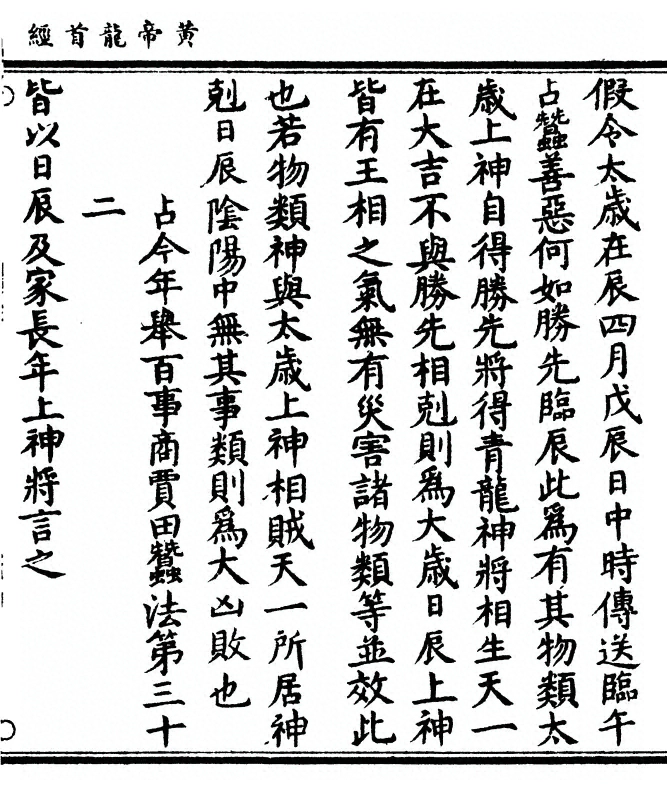 黄帝龍首經
假令太歲在辰四月戊辰日中時傳送臨午
占蠶善惡何如勝先臨辰此爲有其物類太
歲上神自得勝先將得青龍神將相生天一
在大吉不與勝先相剋則爲大歲日辰上神
皆有王相之氣無有災害諸物類等並效此
也若物類神與太歲上神相賊天一所居神
剋日辰陰陽中無其事類則爲大凶敗也
占今年舉百事商賈田蠶法第三十
二
皆以日辰及家長年上神將言之